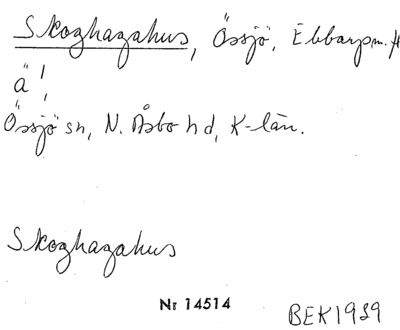 Skoghagahus, Össjö, Ebbarpsm. fl
ä!,
Össjö sn, N. Åsbo hd, K-län.
Skoghagahus
Nr 14514
BEK1989